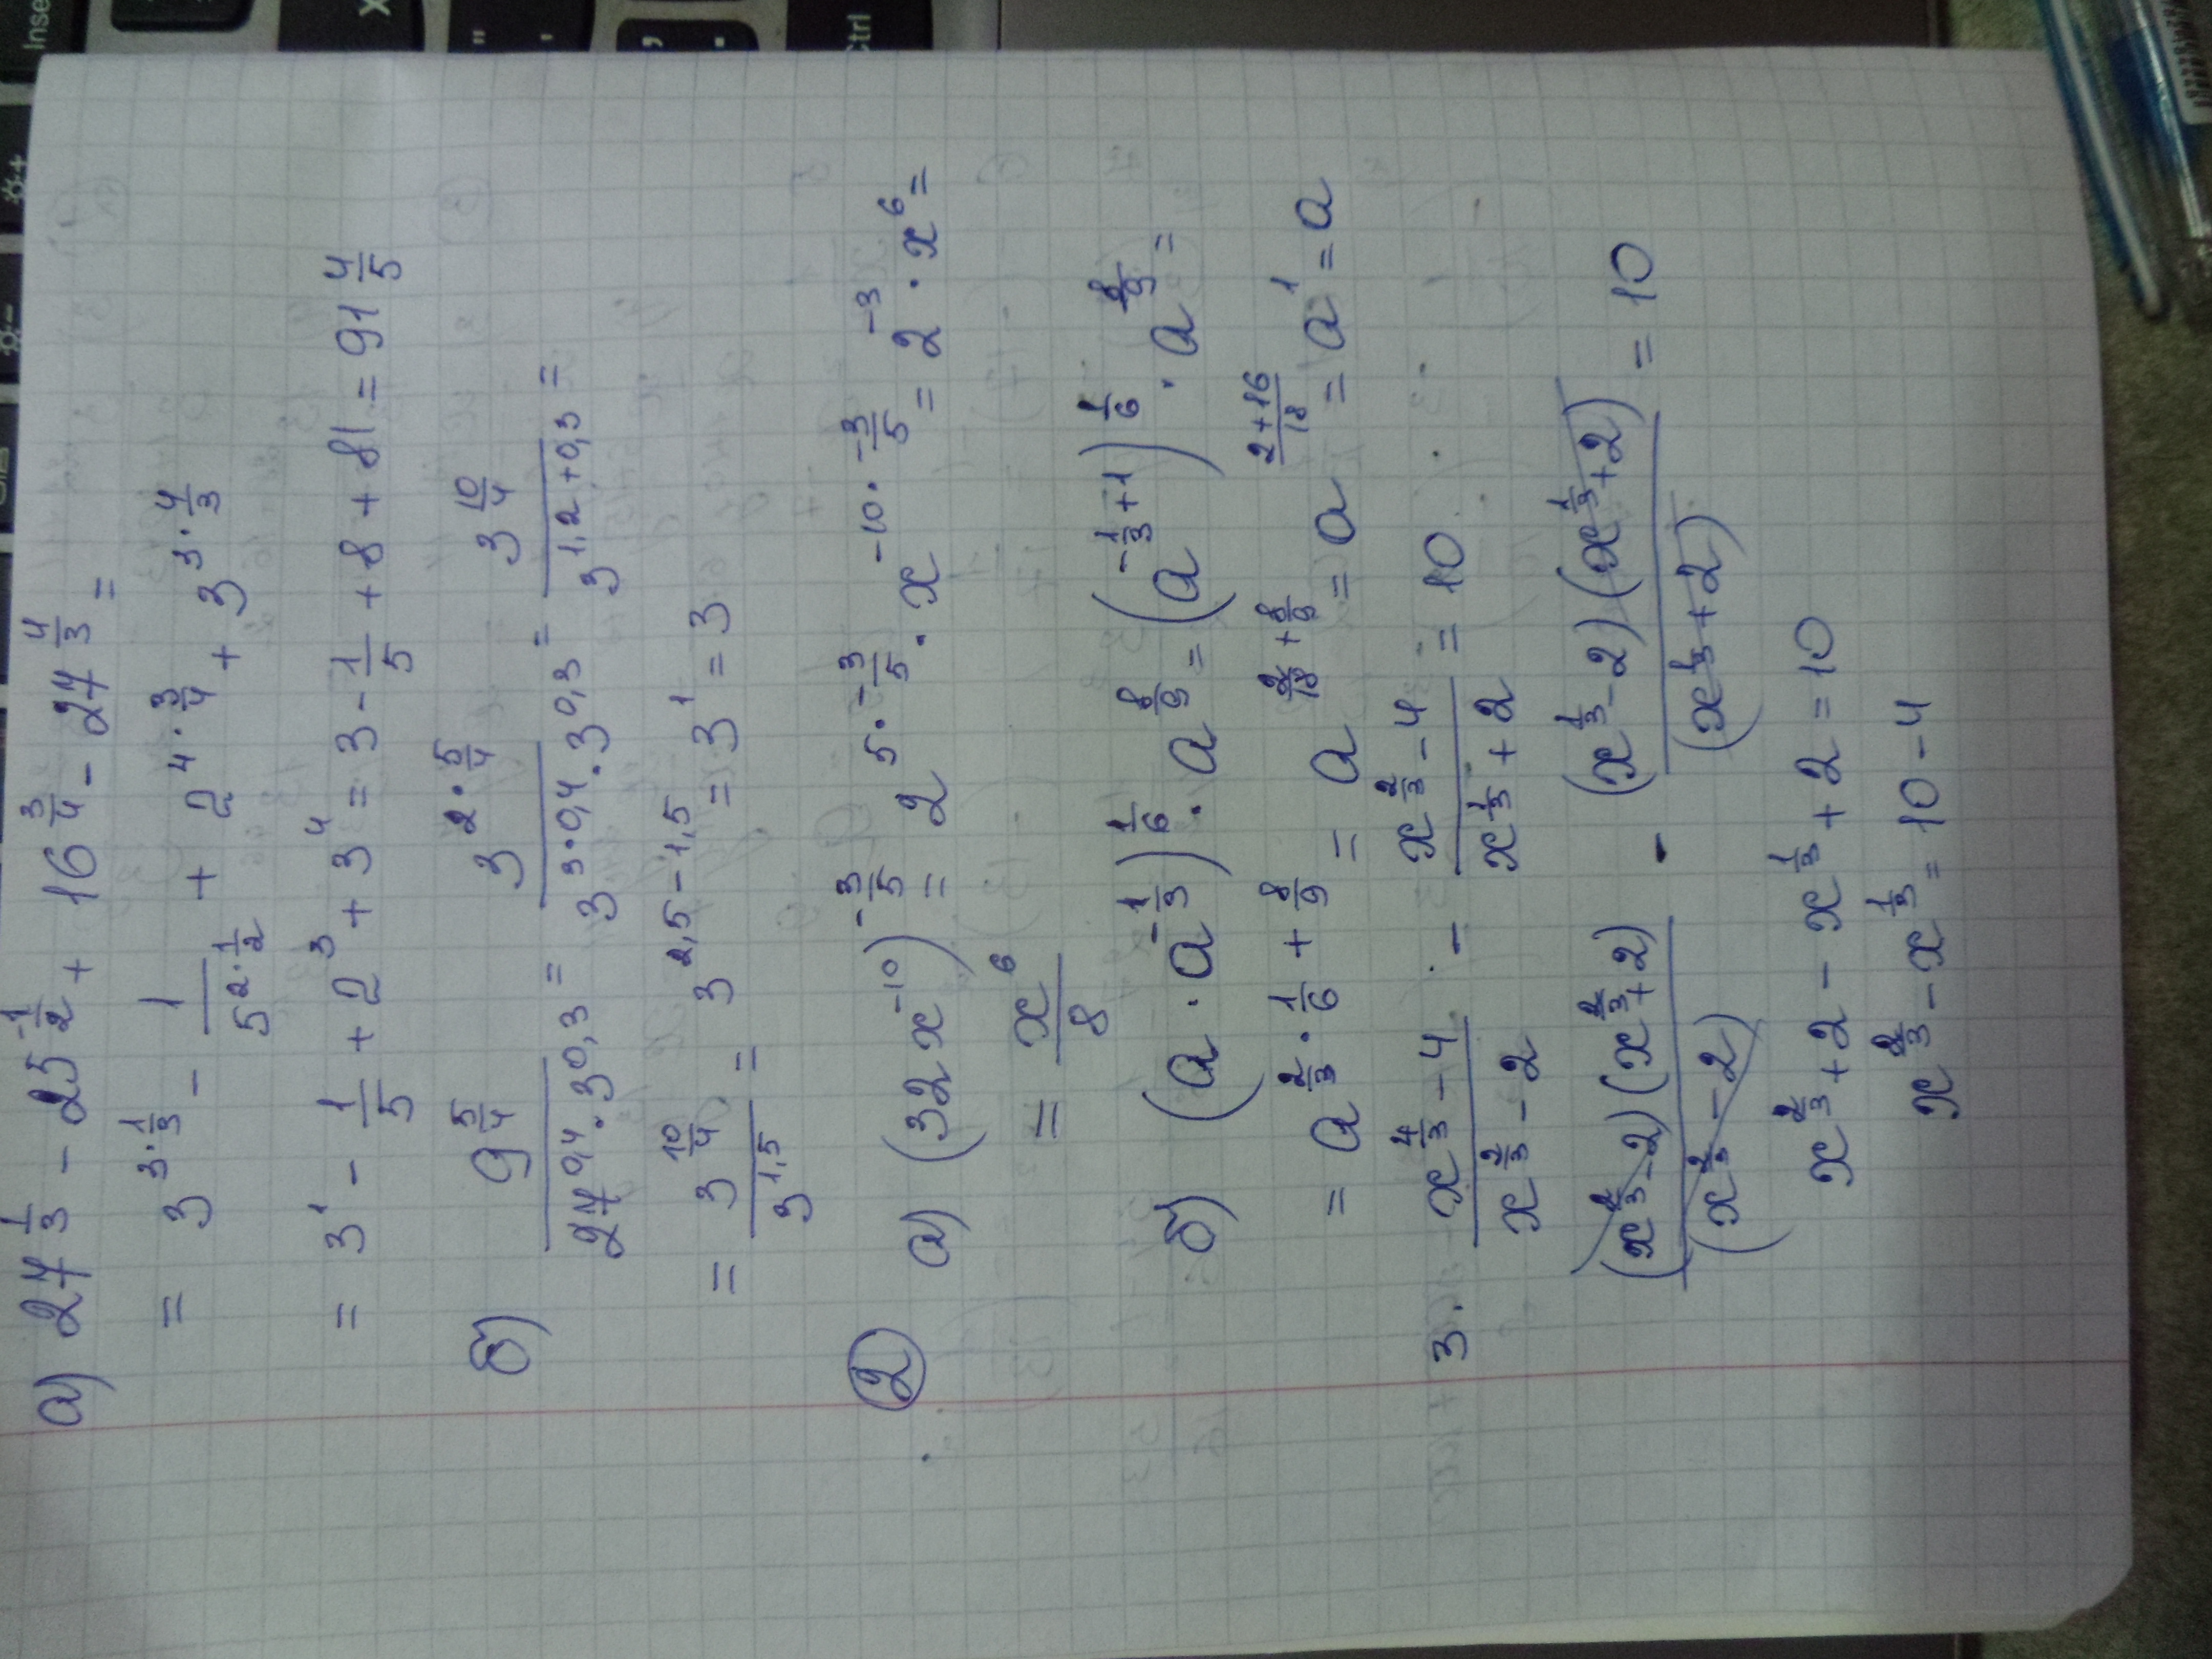 а) 27^(1/3) - 25^(-1/2) + 16^(3/4) - 27^(4/3) =
= 3^(3·1/3) - 1/5^(2·1/2) + 2^(4·3/4) + 3^(3·4/3)
= 3^1 - 1/5 + 2^3 + 3^4 = 3 - 1/5 + 8 + 81 = 91 4/5
б) 9^(5/4)/(27^(0,4) · 3^(0,3)) = 3^(2·5/4)/(3^(3·0,4) · 3^(0,3)) = 3^(10/4)/3^(1,2+0,3) =
= 3^(10/4)/3^(1,5) = 3^(2,5-1,5) = 3^1 = 3
② а) (32x^(-10))^(-3/5) = 2^(5·-3/5) · x^(-10·-3/5) = 2^(-3) · x^6 =
= x^6/8
б) (a · a^(-1/3))^(1/6) · a^(8/9) = (a^(-1/3+1))^(1/6) · a^(8/9) =
= a^(2/3·1/6+8/9) = a^(2/18+8/9) = a^((2+16)/18) = a^1 = a
3. (x^(4/3) - 4)/(x^(2/3) - 2) - (x^(2/3) - 4)/(x^(1/3) + 2) = 10
(x^(2/3) - 2)(x^(2/3) + 2)/(x^(2/3) - 2) - (x^(1/3) - 2)(x^(1/3) + 2)/(x^(1/3) + 2) = 10
x^(2/3) + 2 - x^(1/3) + 2 = 10
x^(2/3) - x^(1/3) = 10 - 4
Inse
X
"
'
,
.
Ctrl